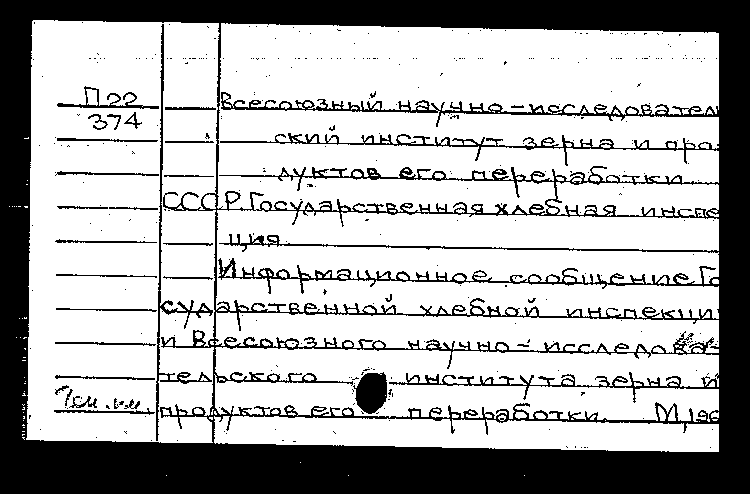 П22 Всесоюзный научно-исследовател
374 ский институт зерна и про
дуктов его переработки
СССР. Государственная хлебная инспе
ция.
Информационное сообщение Го
сударственной хлебной инспекци
и Всесоюзного научно-исследова-
тельского института зерна и
продуктов его переработки. М,